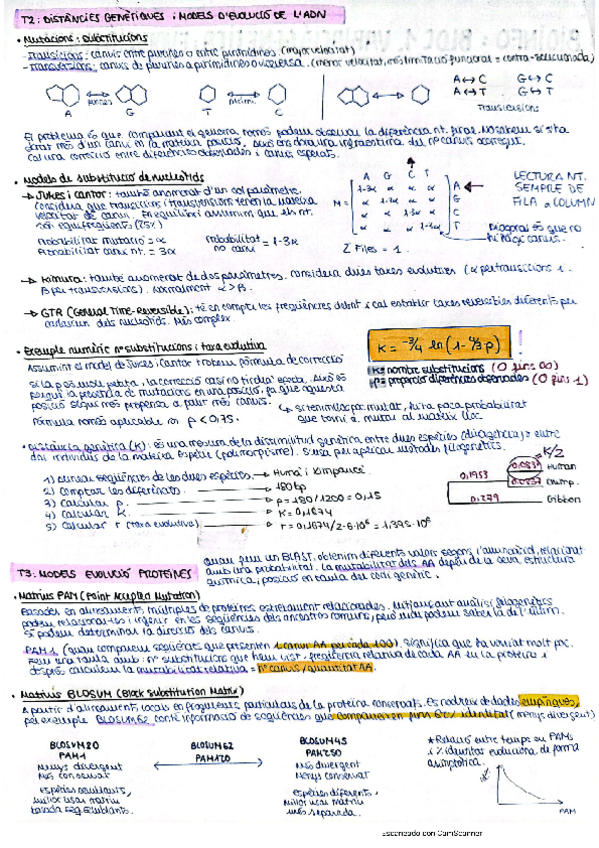 T2: DISTÀNCIES GENÈTIQUES i MODELS D'EVOLUCIÓ DE L'ADN
• Mutacions: substitucions
- Transicions: canvis entre purines o entre pirimidines. (major velocitat)
- Transversions: canvis de purines a pirimidines o viceversa. (menor velocitat, més limitació funcional = contra-seleccionada)
A ↔ C G ↔ C
A ↔ T G ↔ T
Transversions
purines
A G T C
El problema és que comparant el genoma només podem observar la diferència nt. final. No sabem si s'ha
donat més d'un canvi en la mateixa posició, això ens dona una infraestima del nº canvis ocorregut.
Cal una correcció entre diferències observades i canvis esperats.
• Models de substitució de nucleòtids
→ Jukes i Cantor: també anomenat d'un sol paràmetre.
Considera que transicions i transversions tenen la mateixa
velocitat de canvi. En equilibri assumim que els nt.
són equifreqüents (25%)
Probabilitat mutació = α
Probabilitat canvi nt. = 3α
Probabilitat no canvi = 1-3α
A G C T
M =
1-3α α α α A
α 1-3α α α G
α α 1-3α α C
α α α 1-3α T
Σ Files = 1.
LECTURA NT.
SEMPRE DE
FILA a COLUMN
Diagonal és que no
hi hagi canvis.
→ Kimura: també anomenat de dos paràmetres. Considera dues taxes evolutives (α per transicions i
β per transversions). Normalment α > β.
→ GTR (General Time-Reversible): té en compte les freqüències de cada nt i cal establir taxes reversibles diferents per
cadascun dels nucleòtids. Més complex.
• Exemple numèric nº substitucions i taxa evolutiva
Assumint el model de Jukes i Cantor trobem fórmula de correcció
K = -3/4 ln (1- 4/3 p)
K = nombre substitucions (0 fins ∞)
P = proporció diferències observades (0 fins 1)
Si la p és molt petita, la correcció casi no tindrà efecte. Això és
perquè la presència de mutacions en una posició, fa que aquesta
posició sigui més propensa a patir més canvis.
Fórmula només aplicable en p < 0,75.
↳ si tenim llocs per mutar, hi ha poca probabilitat
que torni a mutar al mateix lloc
• Distància genètica (K): és una mesura de la dissimilitud genètica entre dues espècies (divergència) o entre
dos individus de la mateixa espècie (polimorfisme). S'usa per aplicar mètodes filogenètics.
1) Alinear seqüències de les dues espècies. → Humà i Ximpanzé
2) Comptar les diferències. → 180 bp
3) Calcular p. → p = 180/1200 = 0,15
4) Calcular K. → K = 0,1674
5) Calcular r (taxa evolutiva) → r = 0,1674/2·6·10⁶ = 1,395·10⁻⁸
K/2
0,0837 Human
0,1953
0,0837 Chimp.
0,279 Gibbon
T3: MODELS EVOLUCIÓ PROTEÏNES
Quan fem un BLAST, obtenim diferents valors segons l'aminoàcid, relacionat
amb una probabilitat. La mutabilitat dels AA depèn de la seva estructura
química, posició en taula del codi genètic.
• Matrius PAM (Point Accepted Mutation)
Basades en alineaments múltiples de proteïnes estretament relacionades. Mitjançant anàlisi filogenètics
podem relacionar-les i inferir en les seqüències dels ancestres comuns, però mai podem saber la de l'últim.
Sí podem determinar la direcció dels canvis.
PAM1 (quan comparem seqüències que presenten 1 canvi AA per cada 100). Significa que ha variat molt poc.
Fem una taula amb: nº substitucions que hem vist, freqüència relativa de cada AA en la proteïna i
després calculem la mutabilitat relativa = nº canvis / quantitat AA.
• Matrius BLOSUM (Block Substitution Matrix)
A partir d'alineaments locals en fragments particulars de la proteïna conservats. Es nodreix de dades empíriques,
per exemple BLOSUM62 conté informació de seqüències que comparteixen fins 62% identitat (menys divergent)
BLOSUM80
PAM1
Menys divergent
Més conservat
espècies semblants,
millor usar matriu
basada seq. semblants.
BLOSUM62
PAM120
BLOSUM45
PAM250
Més divergent
Menys conservat
espècies diferents,
millor usar matriu
més separada.
* Relació entre temps en PAMs
i % identitat evoluciona de forma
asimptòtica.
PAM
Escaneado con CamScanner